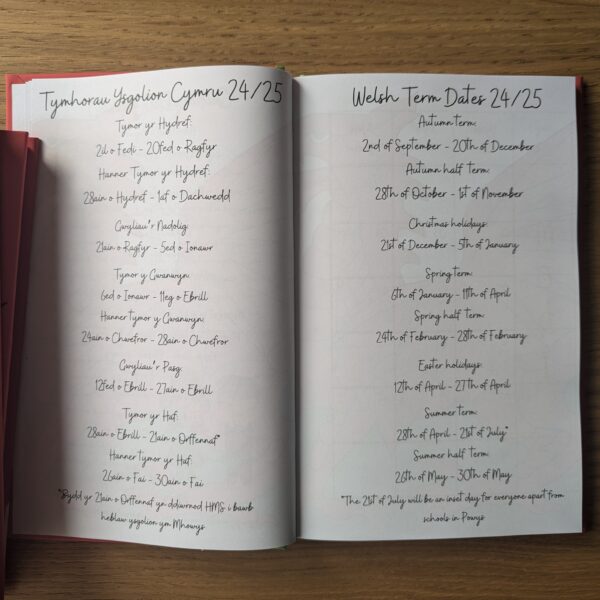 Tymhorau Ysgolion Cymru 24/25
Tymor yr Hydref:
2il o Fedi - 20fed o Ragfyr
Hanner Tymor yr Hydref:
28ain o Hydref - 1af o Dachwedd
Gwyliau'r Nadolig:
21ain o Ragfyr - 5ed o Ionawr
Tymor y Gwanwyn:
6ed o Ionawr - 11eg o Ebrill
Hanner tymor y Gwanwyn:
24ain o Chwefror - 28ain o Chwefror
Gwyliau'r Pasg:
12fed o Ebrill - 27ain o Ebrill
Tymor yr Haf:
28ain o Ebrill - 21ain o Orffennaf*
Hanner tymor yr Haf:
26ain o Fai - 30ain o Fai
*Bydd yr 21ain o Orffennaf yn ddiwrnod HMS i bawb
heblaw ysgolion ym Mhowys
Welsh Term Dates 24/25
Autumn term:
2nd of September - 20th of December
Autumn half term:
28th of October - 1st of November
Christmas holidays:
21st of December - 5th of January
Spring term:
6th of January - 11th of April
Spring half term:
24th of February - 28th of February
Easter holidays:
12th of April - 27th of April
Summer term:
28th of April - 21st of July*
Summer half term:
26th of May - 30th of May
*The 21st of July will be an inset day for everyone apart from
schools in Powys